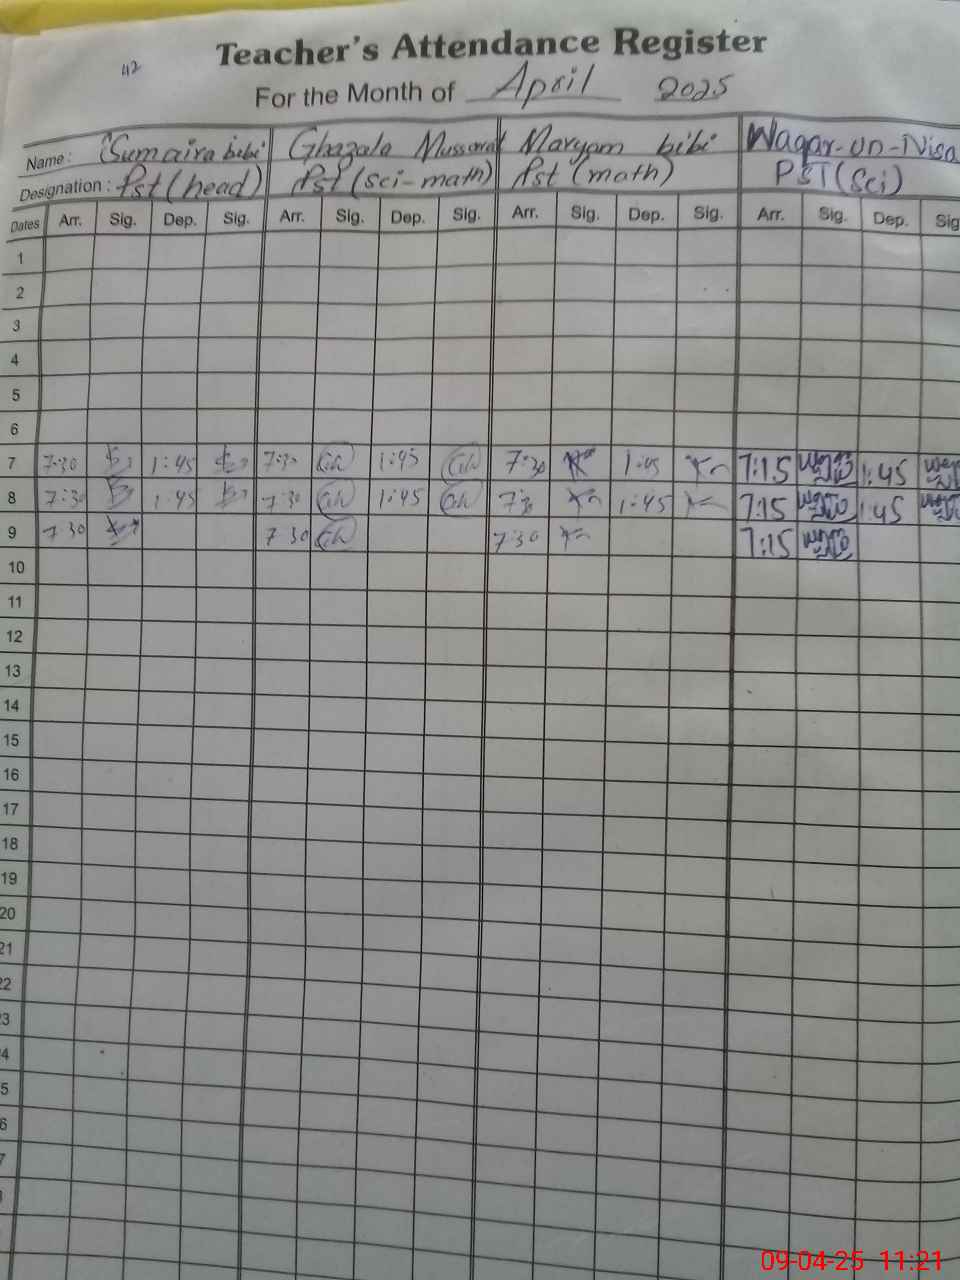 42
Teacher's Attendance Register
For the Month of April 2025
Name: Sumaira bibi Ghazala Mussarat Maryam bibi Waqar-un-Nisa
Designation: Pst (head) Pst (sci-math) Pst (math) PST (Sci)
Dates Arr. Sig. Dep. Sig. Arr. Sig. Dep. Sig. Arr. Sig. Dep. Sig. Arr. Sig. Dep. Sig
1
2
3
4
5
6
7 7:30 1:45 7:30 Gh 1:45 Gh 7:30 1:45 7:15 1:45
8 7:30 1:45 7:30 Gh 1:45 Gh 7:3 1:45 7:15 1:45
9 7 30 7 30 Gh 7:30 7:15
10
11
12
13
14
15
16
17
18
19
20
21
22
23
4
5
6
7
09-04-25 11:21